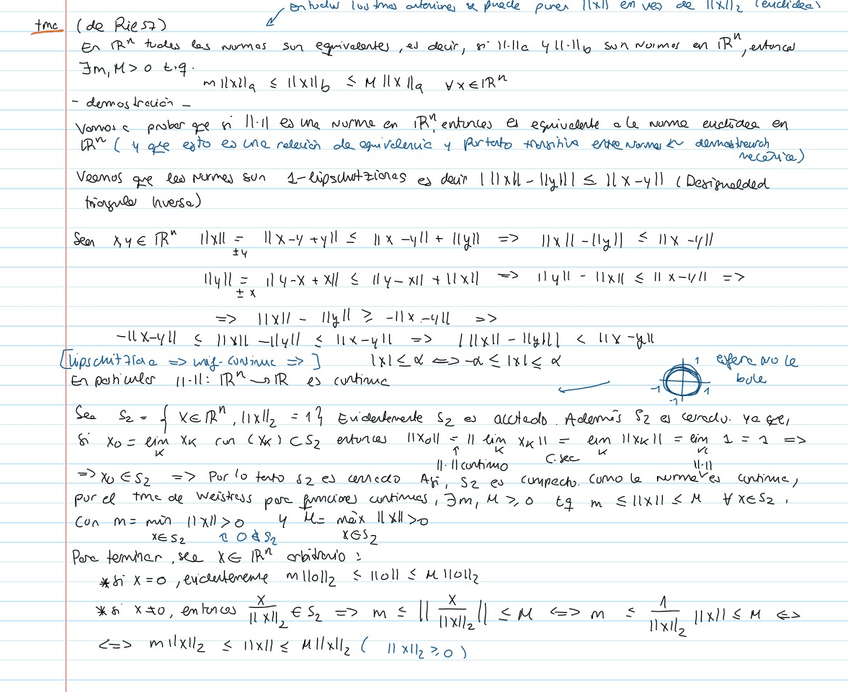 en todos los tmas anteriores se puede poner ||x|| en vez de ||x||₂ (euclidea)
tma (de Riesz)
En ℝⁿ todas las normas son equivalentes, es decir, si ||·||a y ||·||b son normas en ℝⁿ, entonces
∃m, M > 0 t.q.
m ||x||a ≤ ||x||b ≤ M ||x||a ∀x∈ℝⁿ
- demostración -
Vamos a probar que si ||·|| es una norma en ℝⁿ, entonces es equivalente a la norma euclidea en
ℝⁿ ( y que esto es una relación de equivalencia y por tanto transitiva entre normas demostrará
necesaria)
Veamos que las normas son 1-lipschitzianas es decir | ||x|| - ||y|| | ≤ ||x-y|| (Desigualdad
triangular inversa)
Sean x,y ∈ ℝⁿ ||x|| = ||x-y+y|| ≤ ||x-y|| + ||y|| => ||x|| - ||y|| ≤ ||x-y||
±y
||y|| = ||y-x+x|| ≤ ||y-x|| + ||x|| => ||y|| - ||x|| ≤ ||x-y|| =>
± x
=> ||x|| - ||y|| ≥ -||x-y|| =>
-||x-y|| ≤ ||x|| - ||y|| ≤ ||x-y|| => | ||x|| - ||y|| | < ||x-y||
[lipschitziana => unif-continua => ] |x| ≤ α <=> -α ≤ |x| ≤ α esfera NO la
bola
En particular ||·||: ℝⁿ → ℝ es continua
-1 1
-1
Sea S₂ = { x∈ℝⁿ, ||x||₂ = 1} Evidentemente S₂ es acotado. Además S₂ es cerrado. ya que,
si x₀ = lim xₖ con (xₖ) ⊂ S₂ entonces ||x₀|| = || lim xₖ || = lim ||xₖ|| = lim 1 = 1 =>
k k k k
||·|| continua C.sec ||·||
=> x₀ ∈ S₂ => Por lo tanto S₂ es cerrado Así, S₂ es compacto. Como la norma es continua,
por el tma de Weistress para funciones continuas, ∃m, M ≥ 0 tq m ≤ ||x|| ≤ M ∀x∈S₂,
Con m = min ||x|| > 0 y M = máx ||x|| > 0
x∈S₂ 0 ∉ S₂ x∈S₂
Para terminar, sea x ∈ ℝⁿ arbitrario:
* si x = 0, evidentemente m||0||₂ ≤ ||0|| ≤ M||0||₂
* si x ≠ 0, entonces x/||x||₂ ∈ S₂ => m ≤ || x/||x||₂ || ≤ M <=> m ≤ 1/||x||₂ ||x|| ≤ M <=>
<=> m||x||₂ ≤ ||x|| ≤ M||x||₂ ( ||x||₂ ≥ 0 )